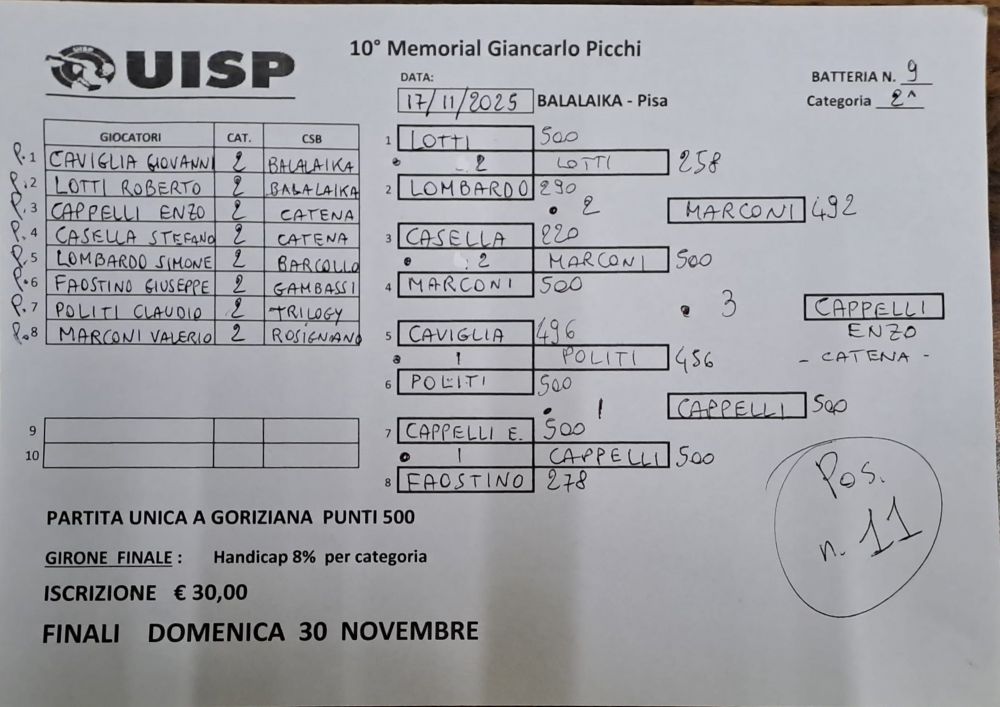 UISP
10° Memorial Giancarlo Picchi
DATA:
17/11/2025 BALALAIKA - Pisa
BATTERIA N. 9
Categoria 2^
GIOCATORI CAT. CSB
P.1 CAVIGLIA GIOVANNI 2 BALALAIKA
P.2 LOTTI ROBERTO 2 BALALAIKA
P.3 CAPPELLI ENZO 2 CATENA
P.4 CASELLA STEFANO 2 CATENA
P.5 LOMBARDO SIMONE 2 BARCOLLO
P.6 FAOSTINO GIUSEPPE 2 GAMBASSI
P.7 POLITI CLAUDIO 2 TRILOGY
P.8 MARCONI VALERIO 2 ROSIGNANO
9
10
1 LOTTI 500
2 LOTTI 258
2 LOMBARDO 290
2 MARCONI 492
3 CASELLA 220
2 MARCONI 500
4 MARCONI 500
3 CAPPELLI
ENZO
- CATENA -
5 CAVIGLIA 496
1 POLITI 456
6 POLITI 500
1 CAPPELLI 500
7 CAPPELLI E. 500
1 CAPPELLI 500
8 FAOSTINO 278
Pos.
n. 11
PARTITA UNICA A GORIZIANA PUNTI 500
GIRONE FINALE : Handicap 8% per categoria
ISCRIZIONE € 30,00
FINALI DOMENICA 30 NOVEMBRE